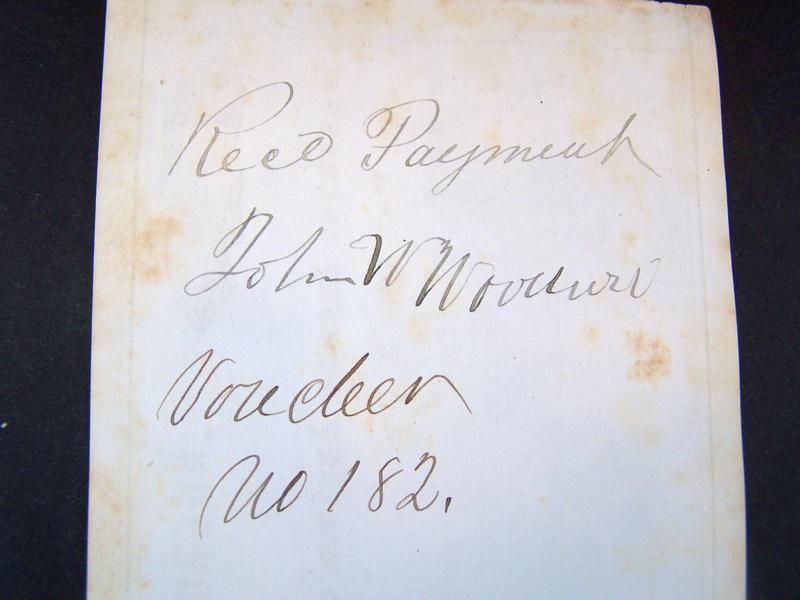 Recd Payment
John W Woodward
Voucher
No 182.